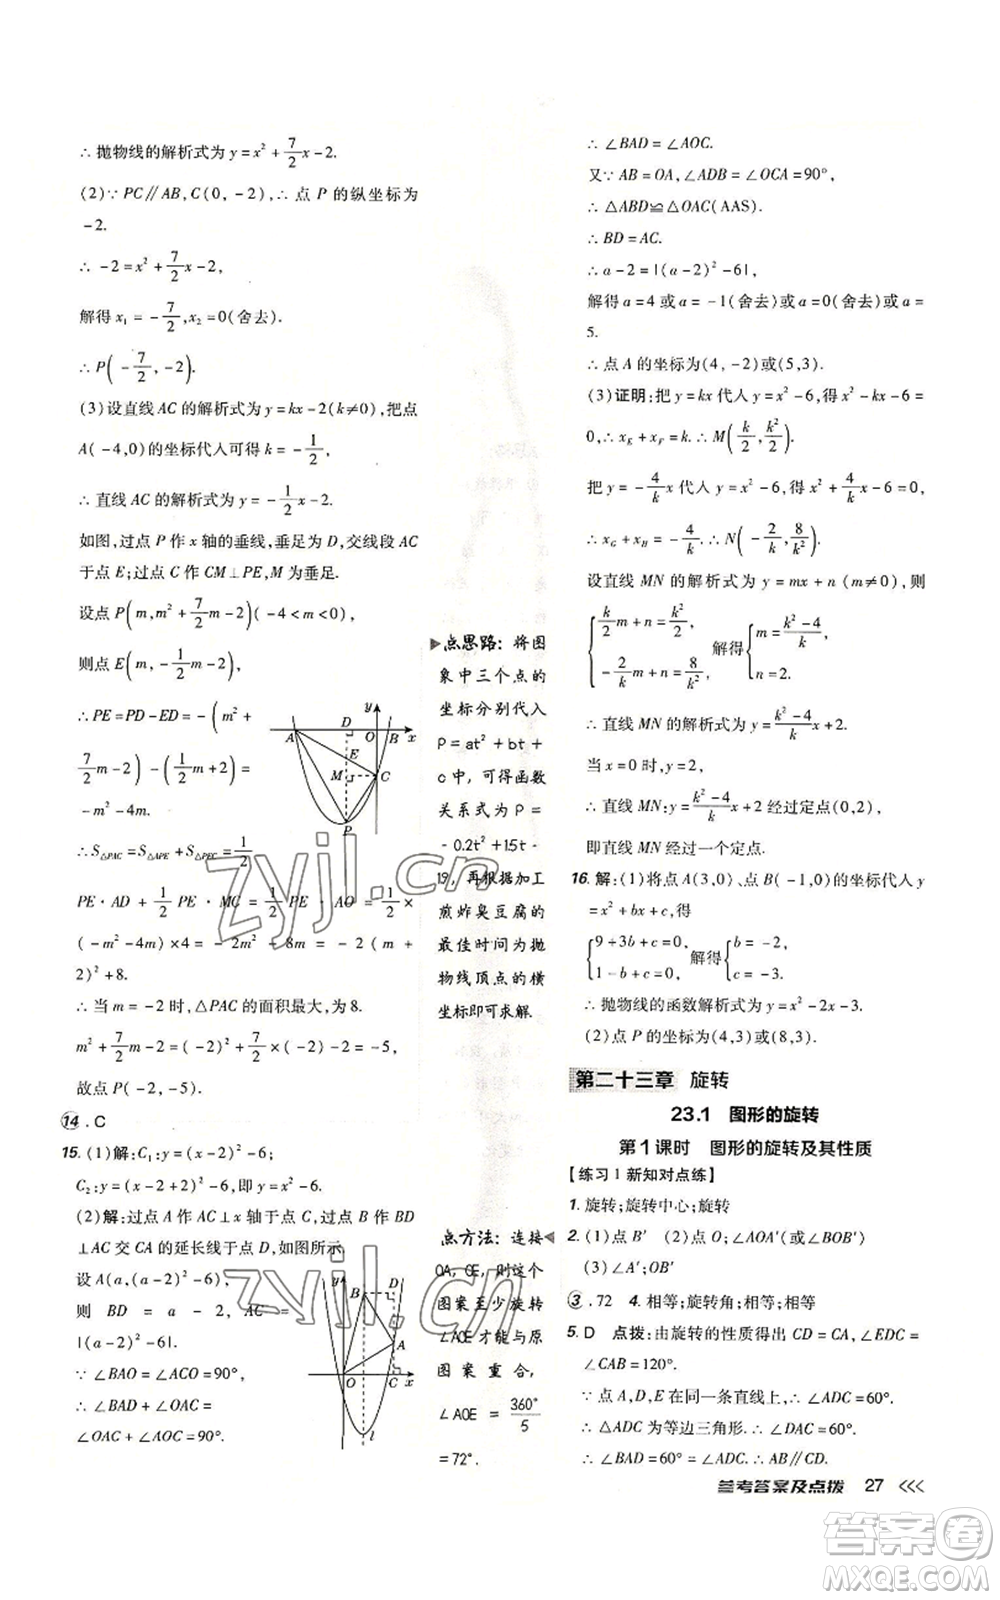 ∴ 抛物线的解析式为 y = x² + 7/2 x - 2.
(2)∵ PC∥AB,C(0,-2),∴ 点 P 的纵坐标为
-2.
∴ -2 = x² + 7/2 x - 2,
解得 x₁ = -7/2,x₂ = 0(舍去).
∴ P(-7/2,-2).
(3)设直线 AC 的解析式为 y = kx - 2(k≠0),把点
A(-4,0)的坐标代人可得 k = -1/2,
∴ 直线 AC 的解析式为 y = -1/2 x - 2.
如图,过点 P 作 x 轴的垂线,垂足为 D,交线段 AC
于点 E;过点 C 作 CM⊥PE,M 为垂足.
设点 P(m,m² + 7/2 m - 2)(-4 < m < 0),
则点 E(m,-1/2 m - 2),
∴ PE = PD - ED = -(m² +
7/2 m - 2) - (1/2 m + 2) =
-m² - 4m.
∴ S△PAC = S△APE + S△PEC = 1/2
PE·AD + 1/2 PE·MC = 1/2 PE·AO = 1/2 ×
(-m² - 4m) × 4 = -2m² - 8m = -2(m +
2)² + 8.
∴ 当 m = -2 时,△PAC 的面积最大,为 8.
m² + 7/2 m - 2 = (-2)² + 7/2 × (-2) - 2 = -5,
故点 P(-2,-5).
14. C
15. (1)解:C₁:y = (x-2)² - 6;
C₂:y = (x-2+2)² - 6,即 y = x² - 6.
(2)解:过点 A 作 AC⊥x 轴于点 C,过点 B 作 BD
⊥AC 交 CA 的延长线于点 D,如图所示.
设 A(a,(a-2)² - 6),
则 BD = a - 2, AC =
|(a-2)² - 6|.
∵ ∠BAO = ∠ACO = 90°,
∴ ∠BAD + ∠OAC =
∠OAC + ∠AOC = 90°.
y
A
D
O
B
x
E
M
C
P
y
B
D
A
O
C
x
l
▶点思路：将图
象中三个点的
坐标分别代入
P = at² + bt +
c 中，可得函数
关系式为 P =
-0.2t² + 1.5t -
1.9，再根据加工
煎炸臭豆腐的
最佳时间为抛
物线顶点的横
坐标即可求解.
点方法：连接◀
OA,OE,则这个
图案至少旋转
∠AOE 才能与原
图案重合，
∠AOE = 360°/5
= 72°.
∴ ∠BAD = ∠AOC.
又∵ AB = OA,∠ADB = ∠OCA = 90°,
∴ △ABD≌△OAC(AAS).
∴ BD = AC.
∴ a - 2 = |(a-2)² - 6|,
解得 a = 4 或 a = -1(舍去)或 a = 0(舍去)或 a =
5.
∴ 点 A 的坐标为(4,-2)或(5,3).
(3)证明:把 y = kx 代人 y = x² - 6,得 x² - kx - 6 =
0,∴ x_E + x_F = k. ∴ M(k/2,k²/2).
把 y = -4/k x 代人 y = x² - 6,得 x² + 4/k x - 6 = 0,
∴ x_G + x_H = -4/k. ∴ N(-2/k,8/k²).
设直线 MN 的解析式为 y = mx + n(m≠0),则
{k/2 m + n = k²/2, -2/k m + n = 8/k² 解得{m = (k²-4)/k, n = 2.
∴ 直线 MN 的解析式为 y = (k²-4)/k x + 2.
当 x = 0 时,y = 2,
∴ 直线 MN:y = (k²-4)/k x + 2 经过定点(0,2),
即直线 MN 经过一个定点.
16. 解:(1)将点 A(3,0)、点 B(-1,0)的坐标代人 y
= x² + bx + c,得
{9 + 3b + c = 0, 1 - b + c = 0, 解得{b = -2, c = -3.
∴ 抛物线的函数解析式为 y = x² - 2x - 3.
(2)点 P 的坐标为(4,3)或(8,3).
第二十三章 旋转
23.1 图形的旋转
第 1 课时 图形的旋转及其性质
【练习 1 新知对点练】
1. 旋转;旋转中心;旋转
2. (1)点 B′ (2)点 O;∠AOA′(或∠BOB′)
(3)∠A′;OB′
3. 72 4. 相等;旋转角;相等;相等
5. D 点拨:由旋转的性质得出 CD = CA,∠EDC =
∠CAB = 120°.
∵ 点 A,D,E 在同一条直线上,∴ ∠ADC = 60°.
∴ △ADC 为等边三角形. ∴ ∠DAC = 60°.
∴ ∠BAD = 60° = ∠ADC. ∴ AB∥CD.
参考答案及点拨 27 <<<
zyjl.cn
zyjl.cn
答案圈
MXQE.COM